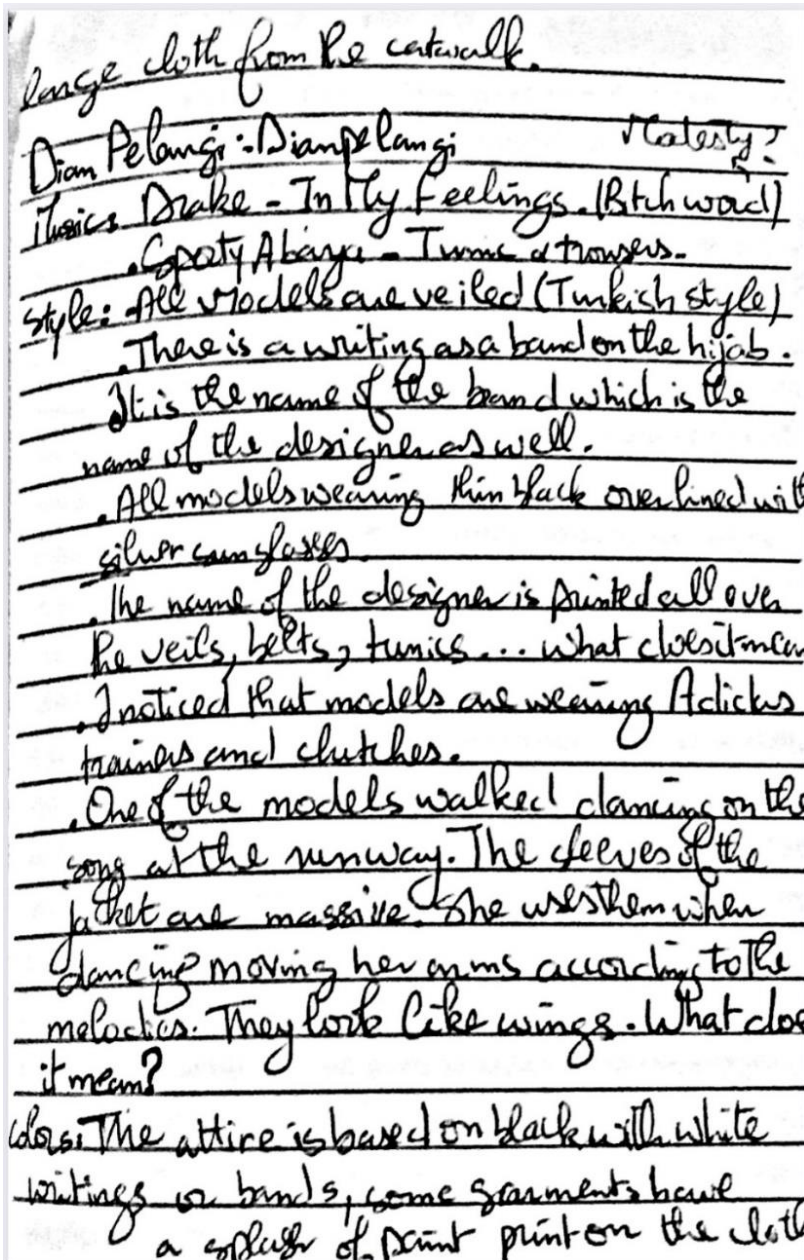 large cloth from the catwalk.
Dian Pelangi :- Dianpelangi
Modesty?
Music: Drake - In My Feelings. (Bitch word)
. Sporty Abaya - Tunic & trousers.
style: - All models are veiled (Turkish style)
. There is a writing as a band on the hijab.
It is the name of the brand which is the
name of the designer as well.
. All models wearing thin black over lined with
silver sunglasses.
. The name of the designer is printed all over
the veils, belts, tunics... what does it mean
. I noticed that models are wearing Adidas
trainers and clutches.
. One of the models walked dancing on the
song at the runway. The sleeves of the
jacket are massive. She uses them when
dancing moving her arms according to the
melodies. They look like wings. What does
it mean?
colors: The attire is based on black with white
writings or bands, some garments have
a splash of paint print on the cloth